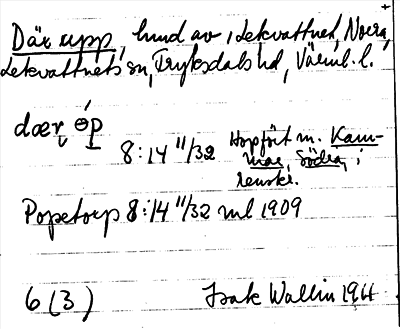 +
Där upp, hund av, Lekvattnet, Norra,
Lekvattnets sn, Fryksdals hd, Värml. l.
dær ɵ́p
8:14 11/32 Hopfört m. Kam-
mar, Södra, i
renskr.
Popetorp 8:14 11/32 ml 1909
6 (3) Isak Wallin 1964